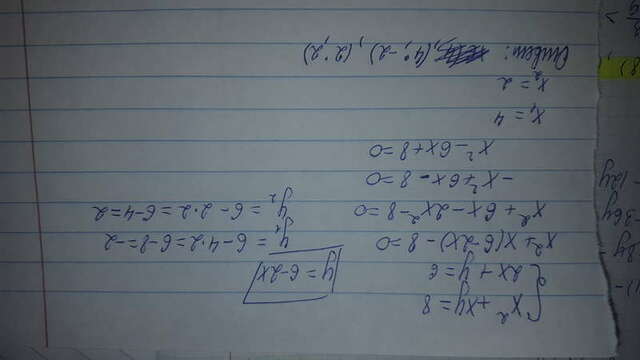 x² + xy = 8
2x + y = 6
y = 6-2x
x² + x(6-2x) - 8 = 0
x² + 6x - 2x² - 8 = 0
-x² + 6x - 8 = 0
x² - 6x + 8 = 0
x₁ = 4
x₂ = 2
y₁ = 6 - 4·2 = 6 - 8 = -2
y₂ = 6 - 2·2 = 6 - 4 = 2
Ответ: (4; -2), (2; 2)
8y
-36y
-12y
8),